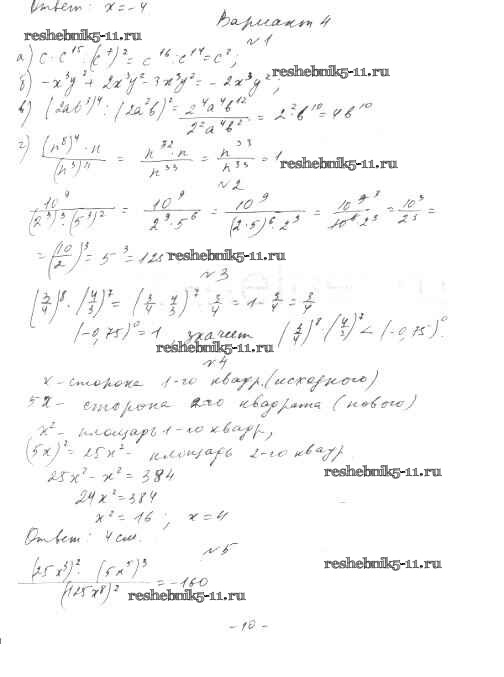 Ответ: x = -4
Вариант 4
reshebnik5-11.ru
№1
а) c · c¹⁵ : (c⁷)² = c¹⁶ : c¹⁴ = c²;
б) -x³y² + 2x³y² - 3x³y² = -2x³y²;
reshebnik5-11.ru
в) (2ab³)⁴ : (2a²b)² = 2⁴a⁴b¹² / 2²a⁴b² = 2²b¹⁰ = 4b¹⁰
г) (n⁸)⁴ · n / (n³)¹¹ = n³² · n / n³³ = n³³ / n³³ = 1
reshebnik5-11.ru
№2
10⁹ / (2³)³ · (5³)² = 10⁹ / 2⁹ · 5⁶ = 10⁹ / (2·5)⁶ · 2³ = 10⁹ ³ / 10⁶ 2³ = 10³ / 23 =
= (10/2)³ = 5³ = 125
reshebnik5-11.ru
№3
(3/4)⁸ · (4/3)⁷ = (3/4 · 4/3)⁷ · 3/4 = 1 · 3/4 = 3/4
(-0,75)⁰ = 1 значит (3/4)⁸ · (4/3)⁷ < (-0,75)⁰.
reshebnik5-11.ru
№4
x - сторона 1-го квадр. (исходного)
5x - сторона 2го квадрата (нового)
x² - площадь 1-го квадр,
(5x)² = 25x² - площадь 2-го квадр.
reshebnik5-11.ru
25x² - x² = 384
24x² = 384
x² = 16; x = 4
Ответ: 4 см.
№5
reshebnik5-11.ru
(25x³)² · (5x⁵)³ / (125x⁸)² = -160
reshebnik5-11.ru
- 10 -